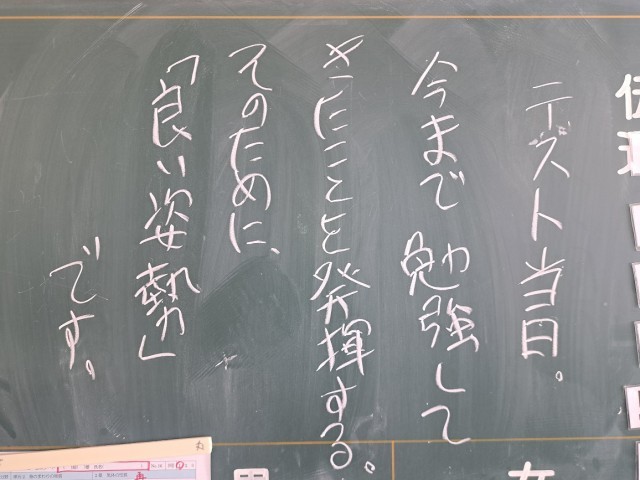 テスト当日。
今まで勉強して
きたことを発揮する。
そのために、
「良い姿勢」
です。